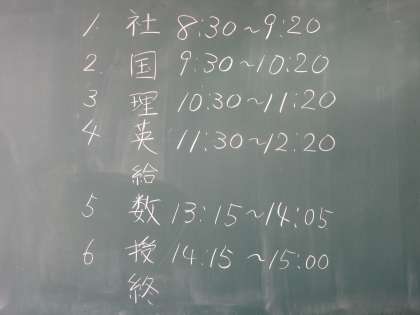 1. 社 8:30~9:20
2. 国 9:30~10:20
3 理 10:30~11:20
4 英 11:30~12:20
給
5 数 13:15~14:05
6 授 14:15~15:00
終